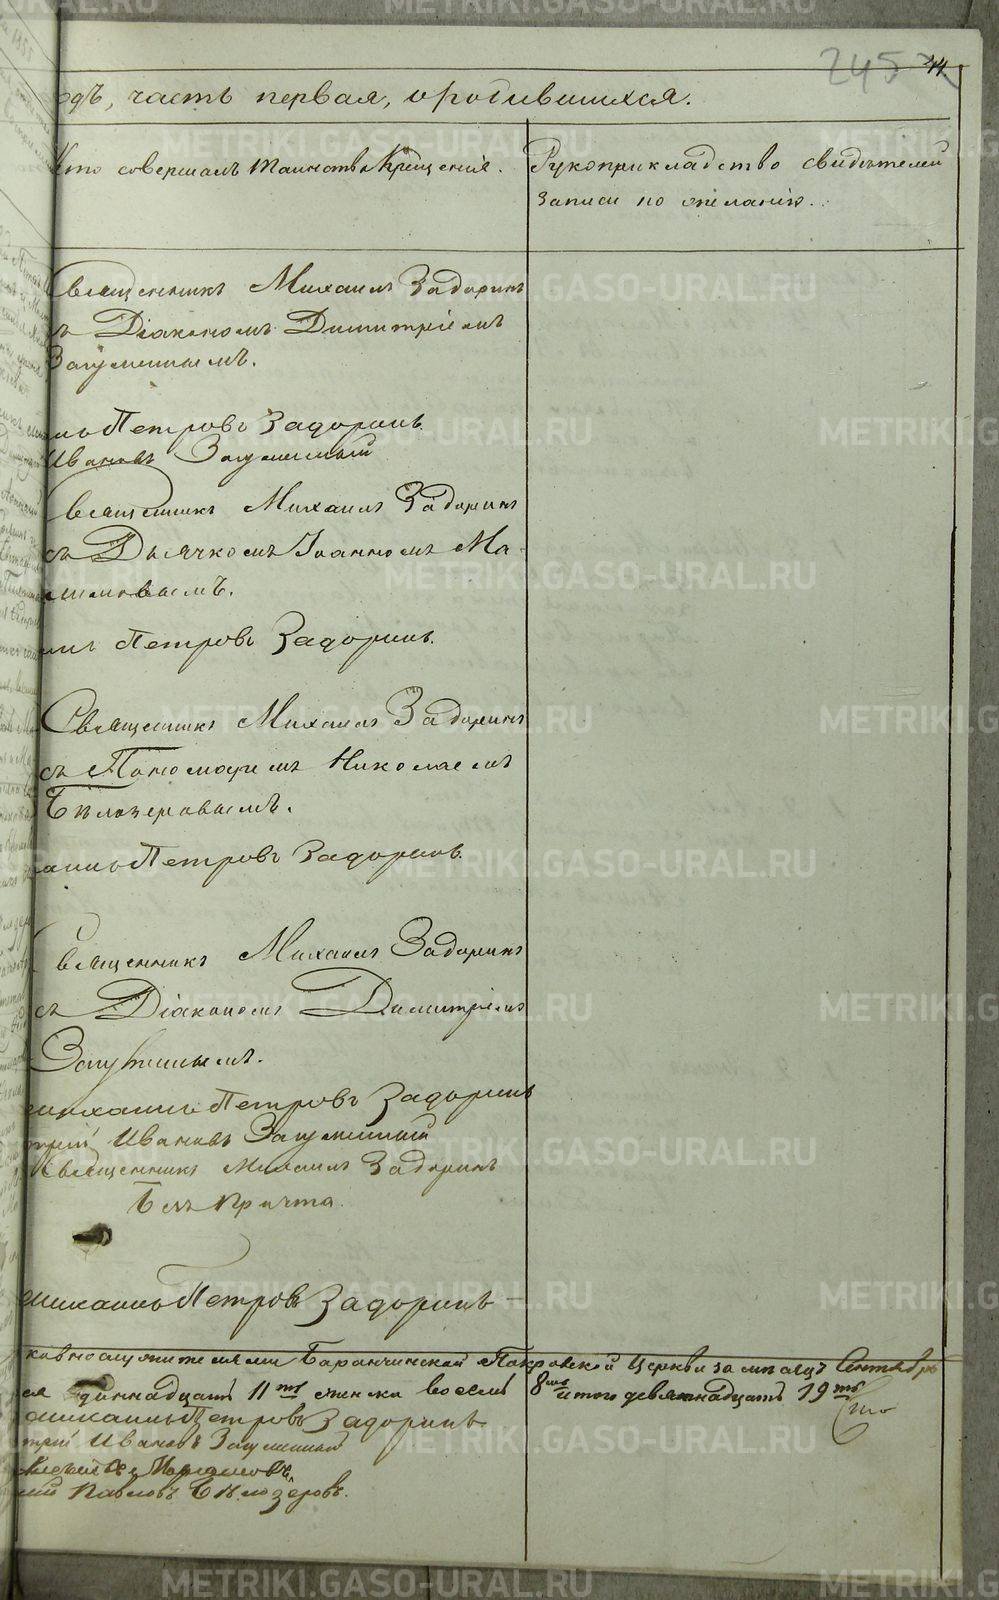 245
44
одъ, часть первая, ородившихся.
Кто совершалъ таинство Крещенія.
Рукоприкладство свидѣтелей
записи по желанію.
Священникъ Михаилъ Задоринъ
съ Діакономъ Димитріемъ
Загуменнымъ.
Петровъ Задоринъ
Ивановъ Загуменный
Священникъ Михаилъ Задоринъ
съ Дьячкомъ Іоанномъ Ма-
Петровъ Задоринъ.
Священникъ Михаилъ Задоринъ
съ Пономаремъ Николаемъ
Бѣлозеровымъ.
Петровъ Задоринъ
Священникъ Михаилъ Задоринъ
съ Діакономъ Димитріемъ
Загуменнымъ.
Петровъ Задоринъ
трій Ивановъ Загуменный
Священникъ Михаилъ Задоринъ
Безъ причта
Петровъ Задоринъ
Баранчинской Покровской Церкви за мѣсяцъ Сентябрь
одиннадцать 11ть женска восемь 8мь итого девятнадцать 19ть
Петровъ Задоринъ
трій Ивановъ Загуменный
Павловъ Бѣлозеровъ.
METRIKI.GASO-URAL.RU